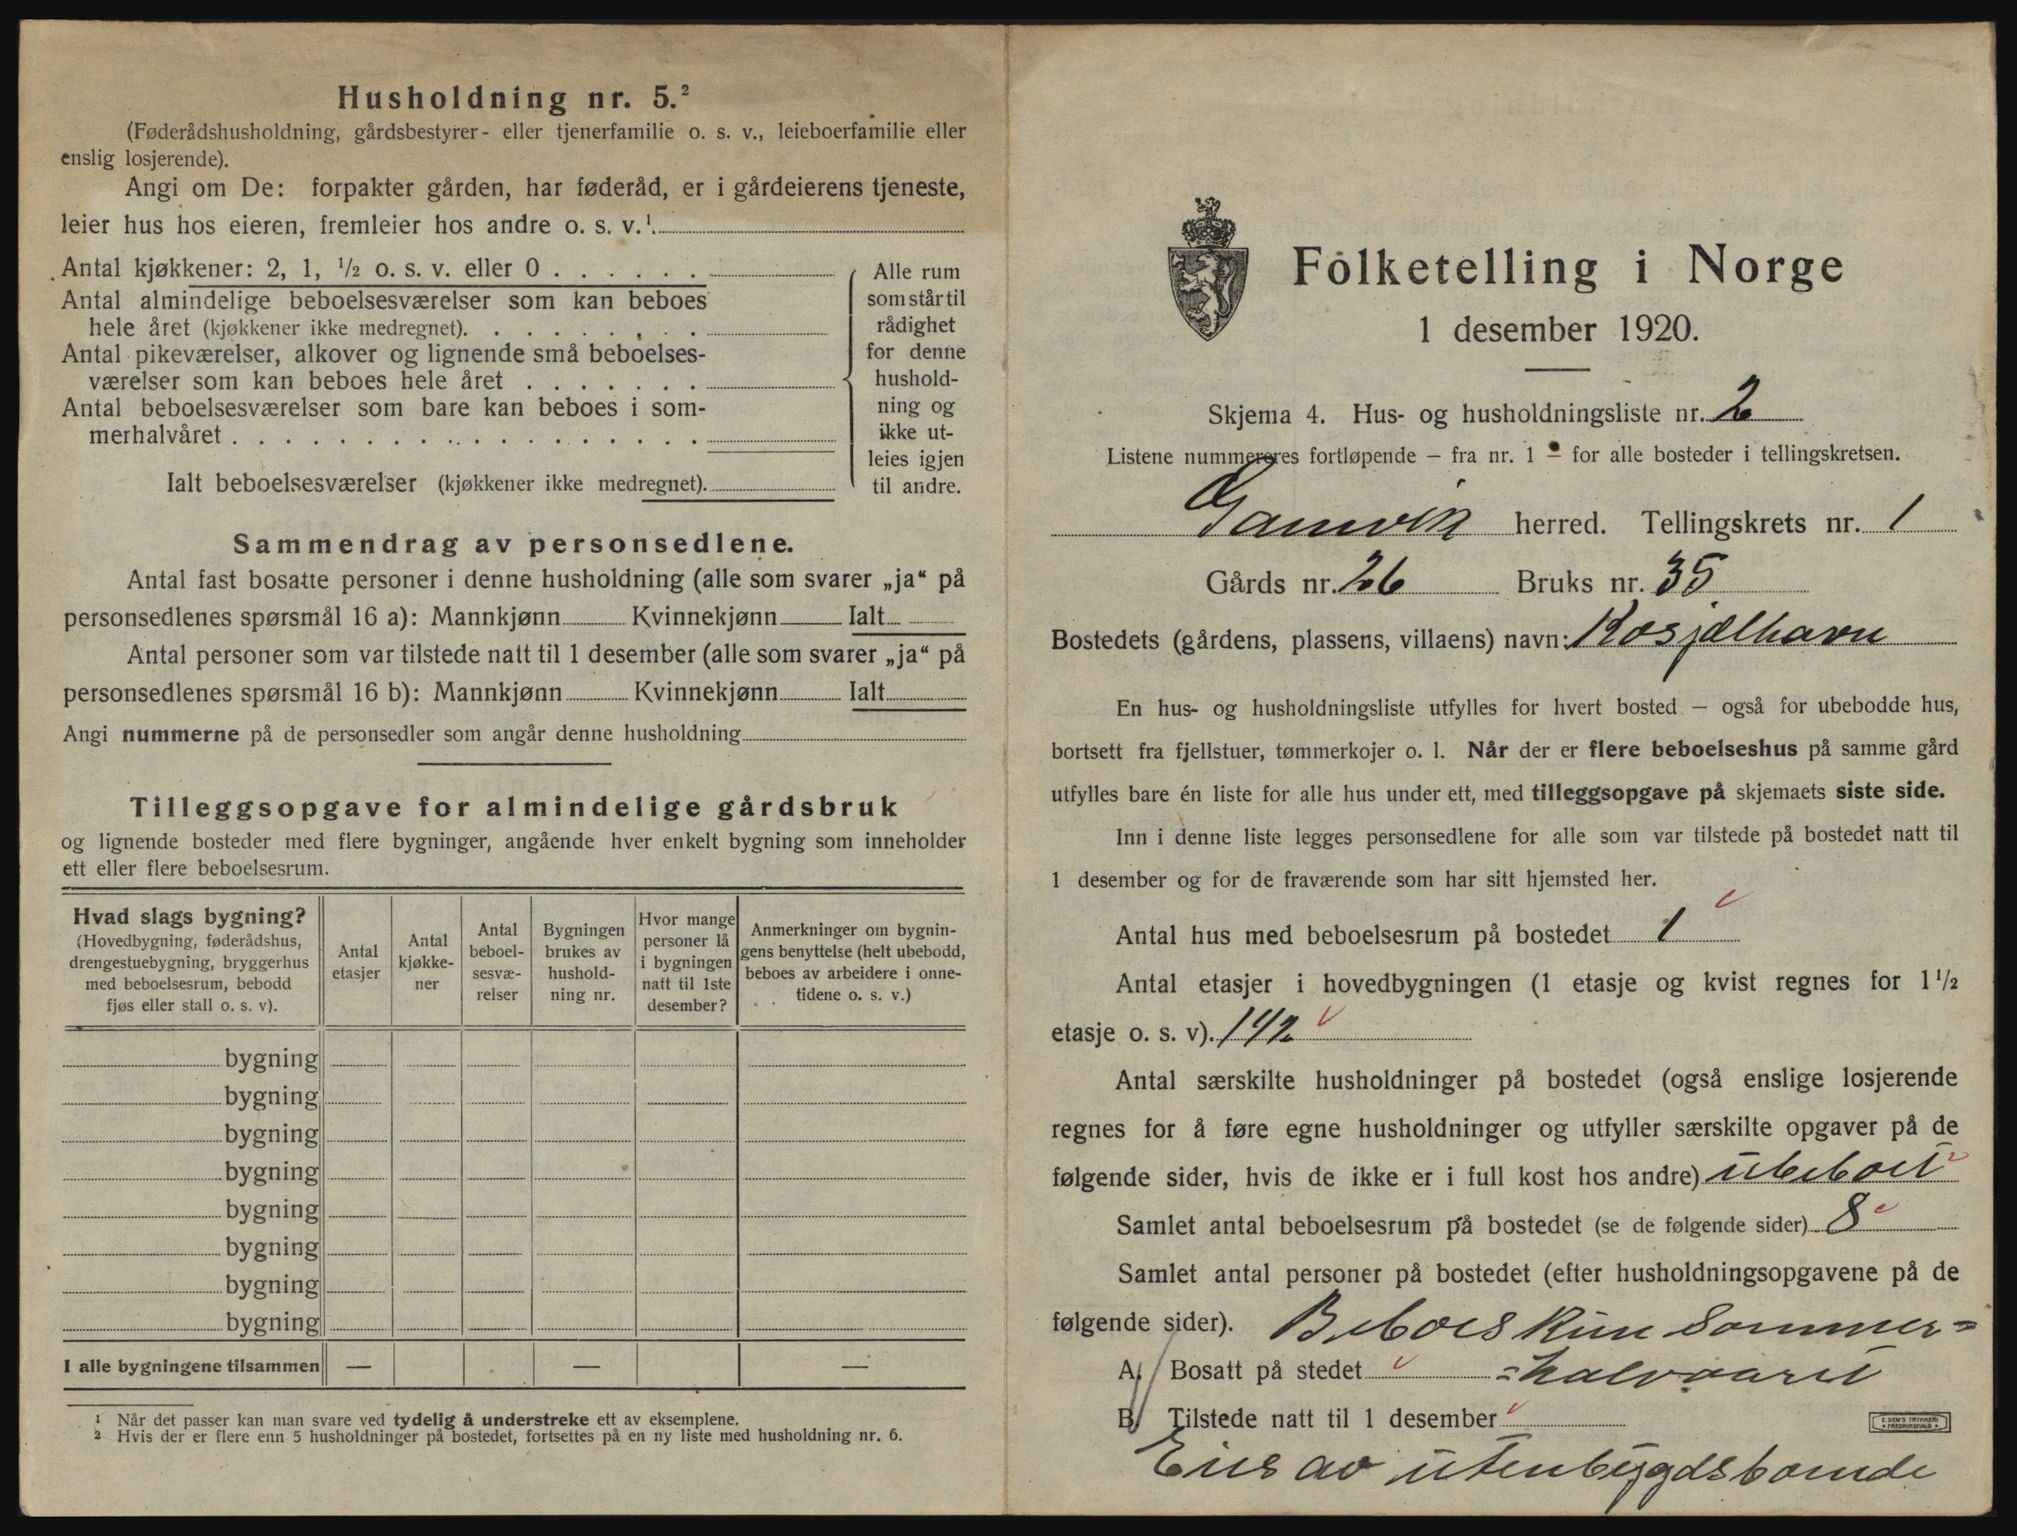 Husholdning nr. 5.²
(Føderådshusholdning, gårdsbestyrer- eller tjenerfamilie o. s. v., leieboerfamilie eller
enslig losjerende).
Angi om De: forpakter gården, har føderåd, er i gårdeierens tjeneste,
leier hus hos eieren, fremleier hos andre o. s. v.¹.
Antal kjøkkener: 2, 1, ½ o. s. v. eller 0 . . . . . .
Antal almindelige beboelsesværelser som kan beboes
hele året (kjøkkener ikke medregnet). . . . . . . . .
Antal pikeværelser, alkover og lignende små beboelses-
værelser som kan beboes hele året . . . . . . .
Antal beboelsesværelser som bare kan beboes i som-
merhalvåret . . . . . . . . . . . . . . . . . .
Ialt beboelsesværelser (kjøkkener ikke medregnet).
Alle rum
som står til
rådighet
for denne
hushold-
ning og
ikke ut-
leies igjen
til andre.
Sammendrag av personsedlene.
Antal fast bosatte personer i denne husholdning (alle som svarer „ja“ på
personsedlenes spørsmål 16 a): Mannkjønn Kvinnekjønn Ialt
Antal personer som var tilstede natt til 1 desember (alle som svarer „ja“ på
personsedlenes spørsmål 16 b): Mannkjønn Kvinnekjønn Ialt
Angi nummerne på de personsedler som angår denne husholdning
Tilleggsopgave for almindelige gårdsbruk
og lignende bosteder med flere bygninger, angående hver enkelt bygning som inneholder
ett eller flere beboelsesrum.
Hvad slags bygning?
(Hovedbygning, føderådshus,
drengestuebygning, bryggerhus
med beboelsesrum, bebodd
fjøs eller stall o. s. v).
Antal
etasjer
Antal
kjøkke-
ner
Antal
beboel-
sesvæ-
relser
Bygningen
brukes av
hushold-
ning nr.
Hvor mange
personer lå
i bygningen
natt til 1ste
desember?
Anmerkninger om bygnin-
gens benyttelse (helt ubebodd,
beboes av arbeidere i onne-
tidene o. s. v.)
bygning
bygning
bygning
bygning
bygning
bygning
bygning
bygning
I alle bygningene tilsammen — — —
¹ Når det passer kan man svare ved tydelig å understreke ett av eksemplene.
² Hvis der er flere enn 5 husholdninger på bostedet, fortsettes på en ny liste med husholdning nr. 6.
Folketelling i Norge
1 desember 1920.
Skjema 4. Hus- og husholdningsliste nr. 2
Listene nummereres fortløpende – fra nr. 1 – for alle bosteder i tellingskretsen.
Gamvik herred. Tellingskrets nr. 1
Gårds nr. 26 Bruks nr. 35
Bostedets (gårdens, plassens, villaens) navn: Kosjølhavn
En hus- og husholdningsliste utfylles for hvert bosted – også for ubebodde hus,
bortsett fra fjellstuer, tømmerkojer o. l. Når der er flere beboelseshus på samme gård
utfylles bare én liste for alle hus under ett, med tilleggsopgave på skjemaets siste side.
Inn i denne liste legges personsedlene for alle som var tilstede på bostedet natt til
1 desember og for de fraværende som har sitt hjemsted her.
Antal hus med beboelsesrum på bostedet 1
Antal etasjer i hovedbygningen (1 etasje og kvist regnes for 1½
etasje o. s. v). 1½
Antal særskilte husholdninger på bostedet (også enslige losjerende
regnes for å føre egne husholdninger og utfyller særskilte opgaver på de
følgende sider, hvis de ikke er i full kost hos andre) ubeboet
Samlet antal beboelsesrum på bostedet (se de følgende sider) 8
Samlet antal personer på bostedet (efter husholdningsopgavene på de
følgende sider). Beboes kun sommer=
A. Bosatt på stedet =halvaaret
B. Tilstede natt til 1 desember
E. SEM'S TRYKKERI
FREDRIKSHALD
Eies av utenbygdsboende